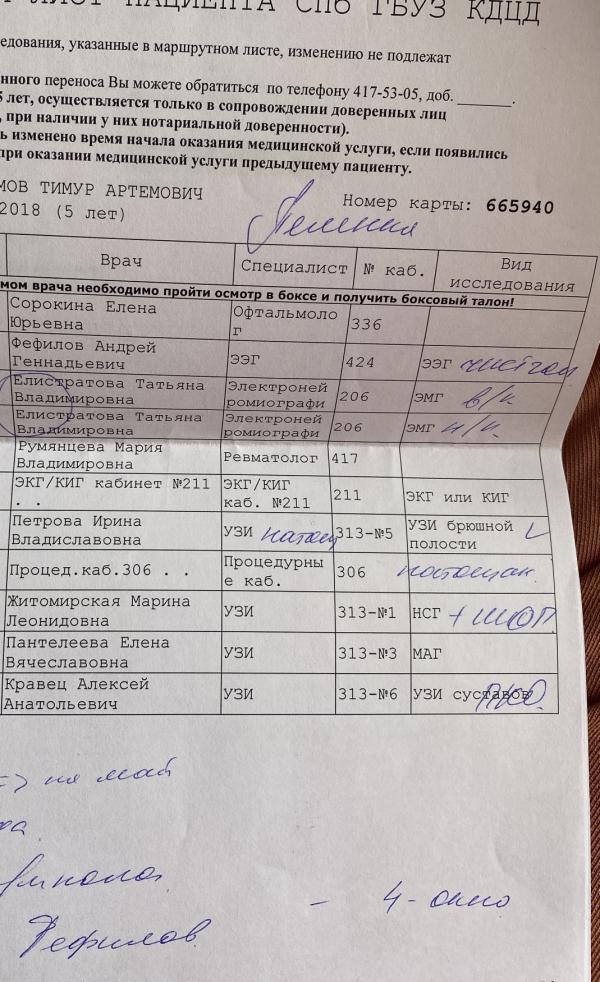 ЛИСТ ПАЦИЕНТА СПб ГБУЗ КДЦД
едования, указанные в маршрутном листе, изменению не подлежат
нного переноса Вы можете обратиться по телефону 417-53-05, доб. _______.
5 лет, осуществляется только в сопровождении доверенных лиц
, при наличии у них нотариальной доверенности).
ь изменено время начала оказания медицинской услуги, если появились
при оказании медицинской услуги предыдущему пациенту.
МОВ ТИМУР АРТЕМОВИЧ
Номер карты: 665940
2018 (5 лет)
Пеленка
Врач Специалист № каб. Вид исследования
мом врача необходимо пройти осмотр в боксе и получить боксовый талон!
Сорокина Елена Офтальмоло 336
Юрьевна г
Фефилов Андрей ЭЭГ 424 ЭЭГ
Геннадьевич
Елистратова Татьяна Электроней 206 ЭМГ в/к
Владимировна ромиографи
Елистратова Татьяна Электроней 206 ЭМГ н/к.
Владимировна ромиографи
Румянцева Мария Ревматолог 417
Владимировна
ЭКГ/КИГ кабинет №211 ЭКГ/КИГ 211 ЭКГ или КИГ
. . каб. №211
Петрова Ирина УЗИ натощ 313-№5 УЗИ брюшной
Владиславовна полости
Процед.каб.306 . . Процедурны 306 натощак.
е каб.
Житомирская Марина УЗИ 313-№1 НСГ + ШОП
Леонидовна
Пантелеева Елена УЗИ 313-№3 МАГ
Вячеславовна
Кравец Алексей УЗИ 313-№6 УЗИ суставов
Анатольевич
=> на май
- 4-окно
Фефилов